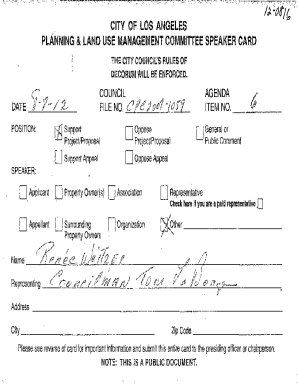 12-0816
CITY OF LOS ANGELES
PLANNING & LAND USE MANAGEMENT COMMITTEE SPEAKER CARD
THE CITY COUNCIL'S RULES OF
DECORUM WILL BE ENFORCED.
COUNCIL AGENDA
DATE 8-7-12 FILE NO. CPC 2009-1059 ITEM NO. 6
POSITION: Support Project/Proposal Oppose Project/Proposal General or Public Comment
Support Appeal Oppose Appeal
SPEAKER:
Applicant Property Owner(s) Association Representative
Check here if you are a paid representative
Appellant Surrounding Property Owners Organization Other
Name Renée Weitzer
Representing Councilman Tom LaBonge
Address
City Zip Code
Please see reverse of card for important information and submit this entire card to the presiding officer or chairperson.
NOTE: THIS IS A PUBLIC DOCUMENT.